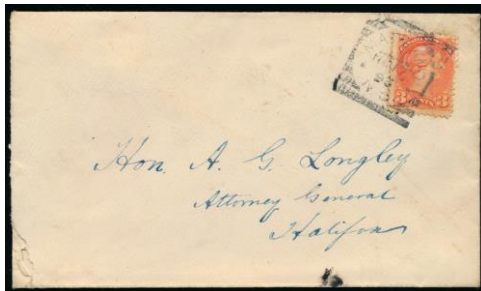 Hon. A. G. Longley
Attorney General
Halifax